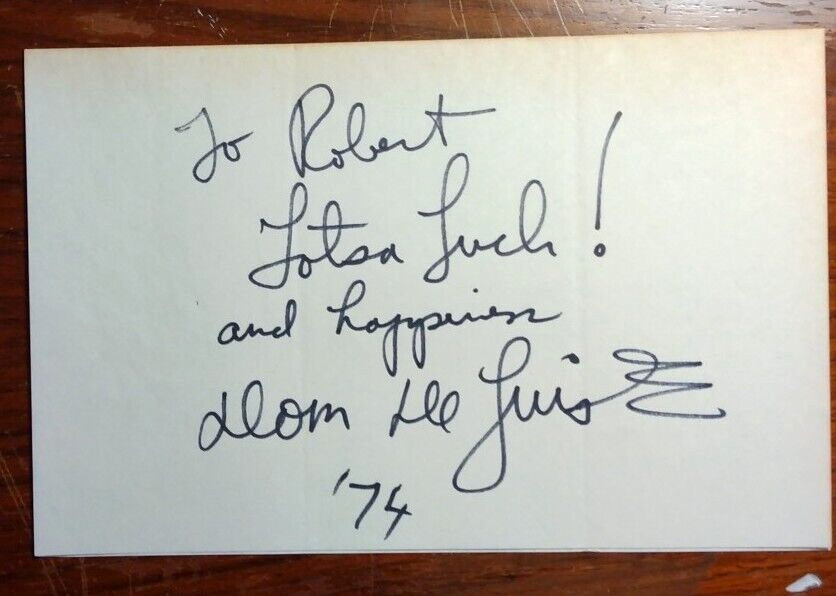 To Robert
Lotsa Luck!
and happiness
Dom De Luise
'74